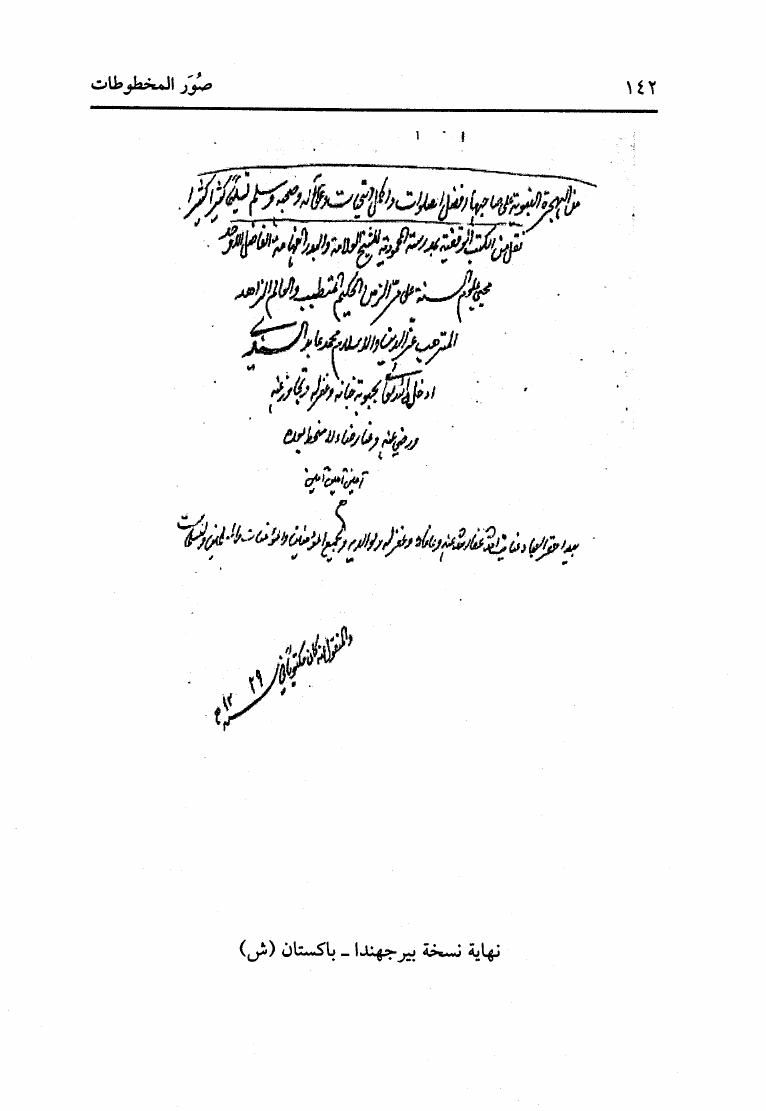 ١٤٢ صُوَر المخطوطات
من الهجرة النبوية على صاحبها أفضل الصلوات وأكمل التحيات وعلى آله وصحبه وسلم تسليما كثيرا كثيرا
نقل من الكتب الوقفية بمدرسة المحمودية للشيخ العلامة والبدر الفهامة الفاضل الأوحد
محيي علوم السنة على مر الزمن الحكيم المتطبب والعالم الزاهد
المترهب عز الدين والإسلام محمد عابد السندي
ادخله الله تعالى بحبوحة جنانه وغفر له وتجاوز عنه
ورضي عنه وعنا رضاء لا سخط بعده
آمين آمين آمين
العباد عنايت الله غفار عنه وغفر له ولوالديه ولجميع المؤمنين والمؤمنات والمسلمين والمسلمات
والمنقول منه كان مكتوبا في
٢٩
١٢
سنة
نهاية نسخة بيرجهندا - باكستان (ش)